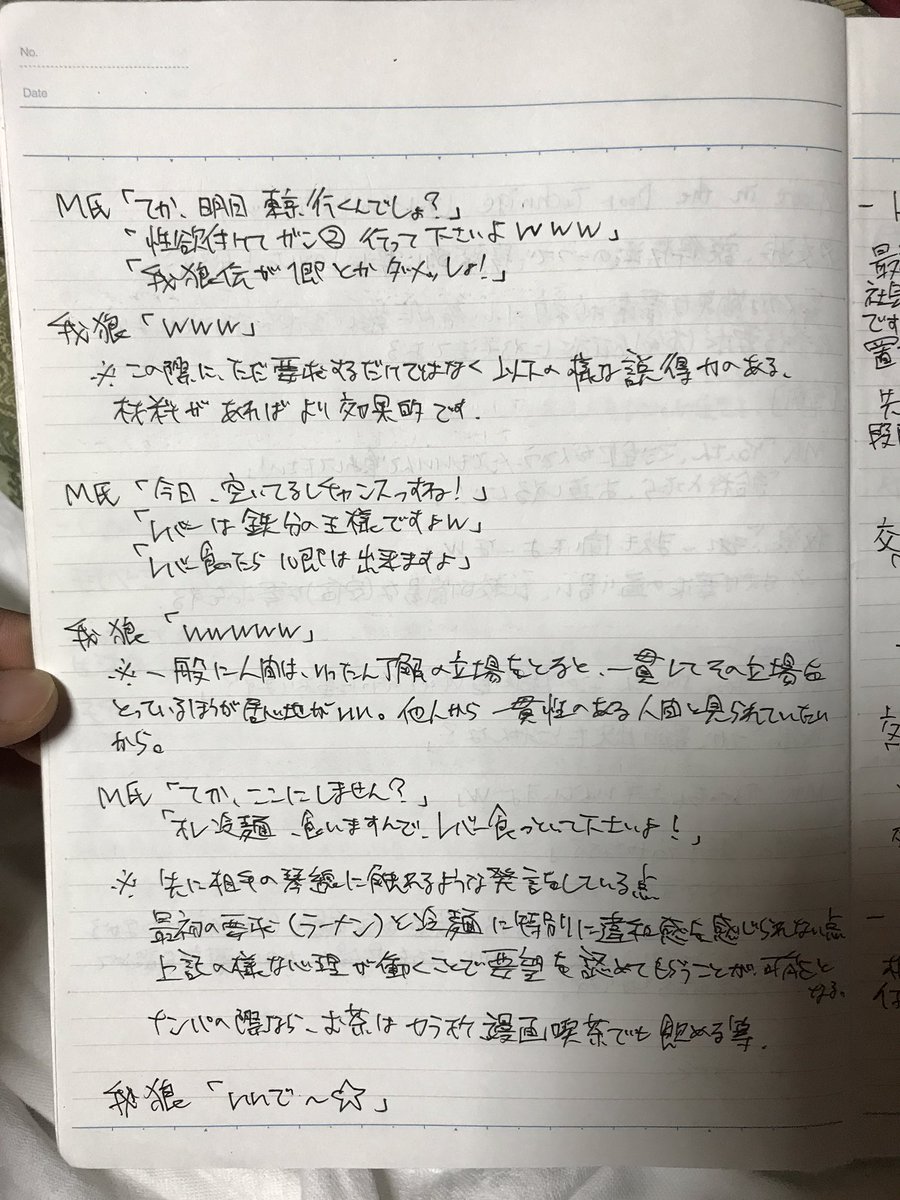 No.
Date
M氏「てか、明日 東京 行くんでしょ?」
「性欲付けて ガン② 行って下さいよwww」
「我狼伝が1即とかダメっしょ!」
我狼「www」
※この際に、ただ要求するだけではなく以下の様な説得力のある、
材料があればより効果的です.
M氏「今日、空いてるしチャンスっすね!」
「レバーは鉄分の王様ですよw」
「レバー食ったら10即は出来ますよ」
我狼「wwwww」
※一般に人間は、いったん了解の立場をとると、一貫してその立場を
とっているほうが居心地がいい。他人から一貫性のある人間と見られていたい
から。
M氏「てか、ここにしません?」
「オレ冷麺、食いますんで、レバー食っといて下さいよ!」
※先に相手の琴線に触れるような発言をしている点
最初の要求(ラーメン)と冷麺に特別に違和感を感じられない点
上記の様な心理が働くことで要望を認めてもらうことが、可能と
なる。
ナンパの際なら、お茶はカラオケ、漫画喫茶でも飲める等.
我狼「いいで〜☆」
最
社会
です
置
先
段
交